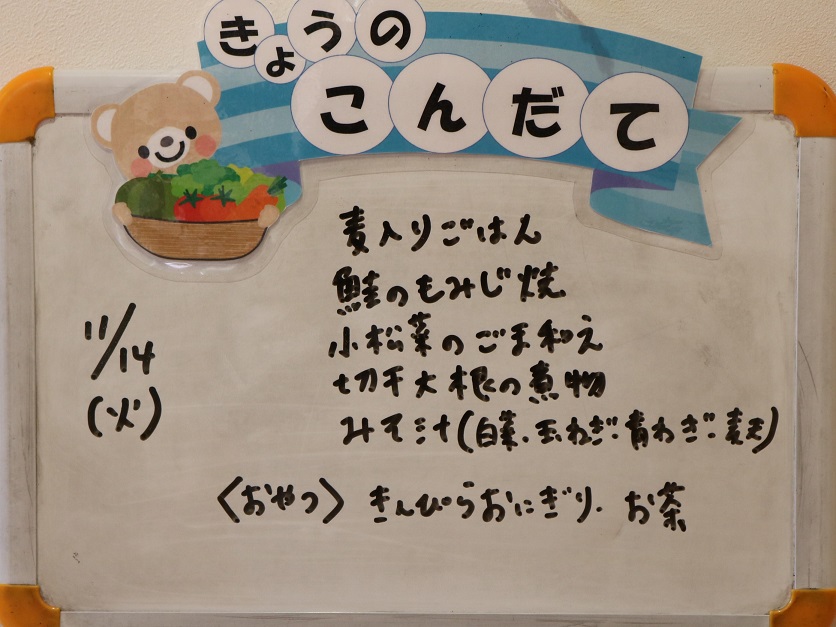 きょうの
こんだて
11/14
(火)
麦入りごはん
鮭のもみじ焼
小松菜のごま和え
切干大根の煮物
みそ汁(白菜・玉ねぎ・青ねぎ・麦みそ)
〈おやつ〉きんぴらおにぎり・お茶